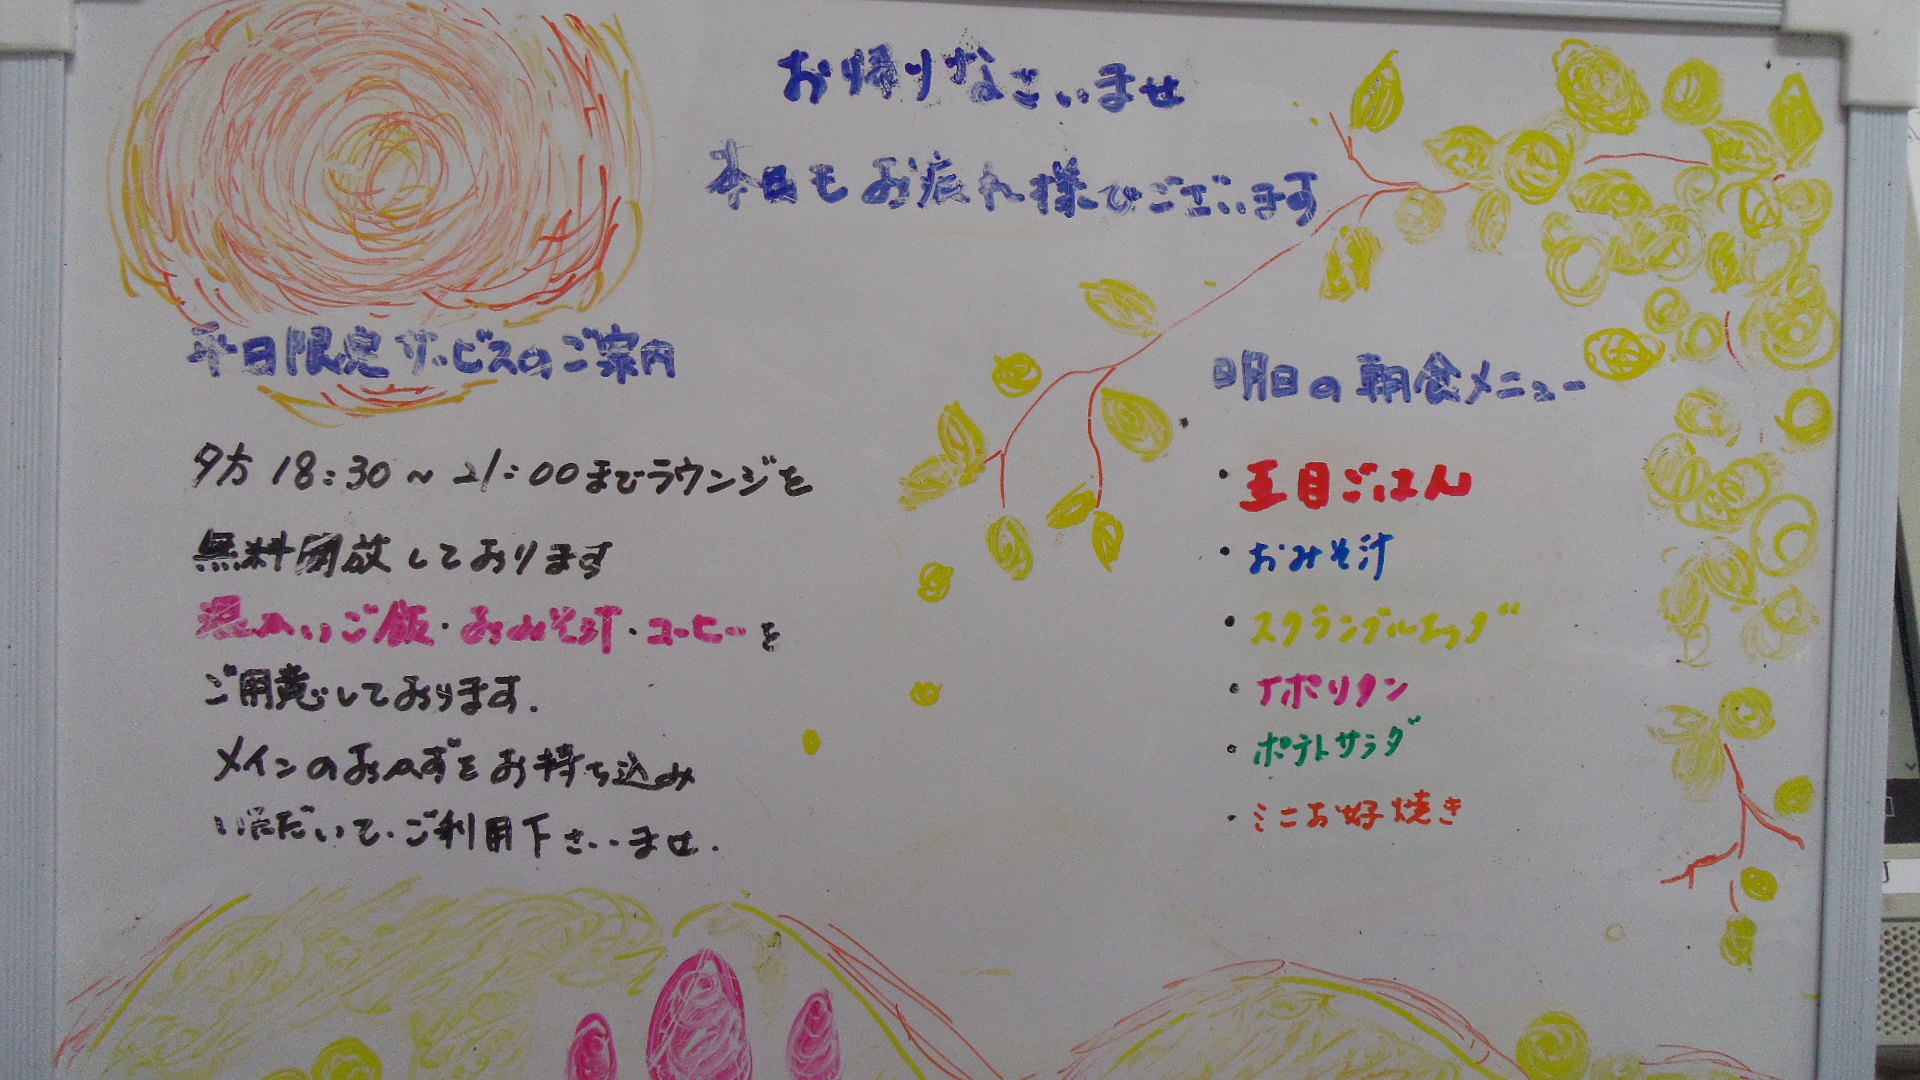 お帰りなさいませ
本日もお疲れ様でございます
平日限定サービスのご案内
夕方18:30～21:00までラウンジを
無料開放しております
温かいご飯・おみそ汁・コーヒーを
ご用意しております.
メインのおかずをお持ち込み
いただいて、ご利用下さいませ.
明日の朝食メニュー
・五目ごはん
・おみそ汁
・スクランブルエッグ
・ナポリタン
・ポテトサラダ
・ミニお好焼き